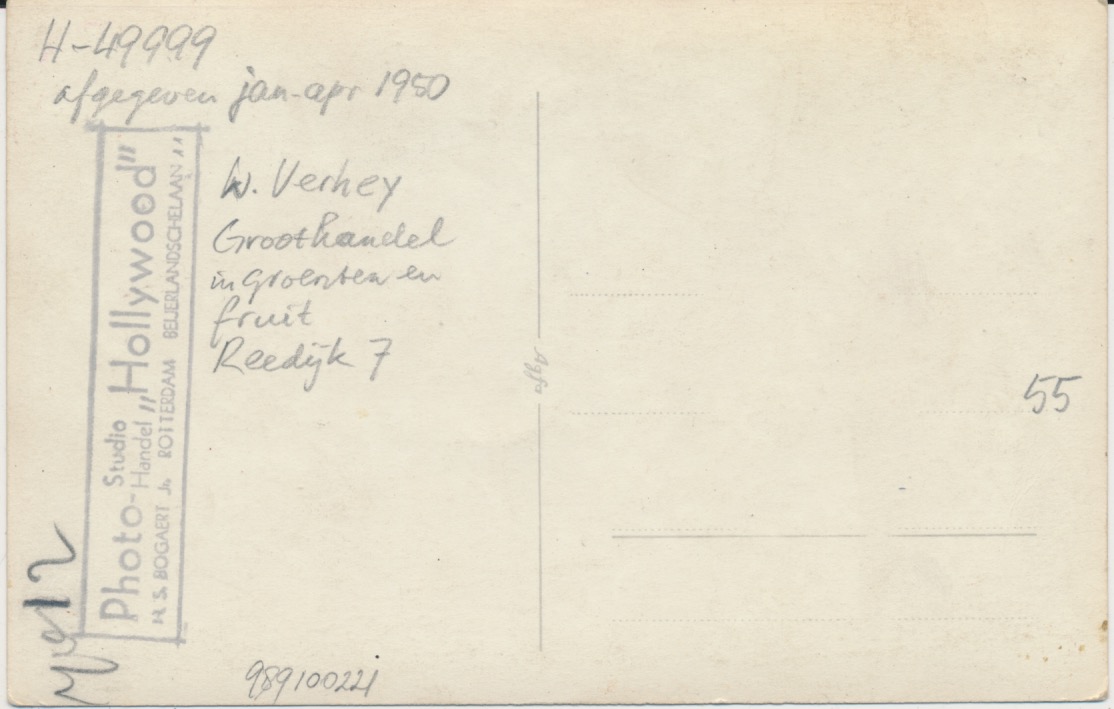 H-49999
afgegeven jan-apr 1950
W. Verhey
Groothandel
in groenten en
fruit
Reedijk 7
Photo-Studio
Handel „Hollywood”
H. S. BOGAERT Jr. ROTTERDAM BEIJERLANDSCHELAAN 11
Agfa
55
12
989100221